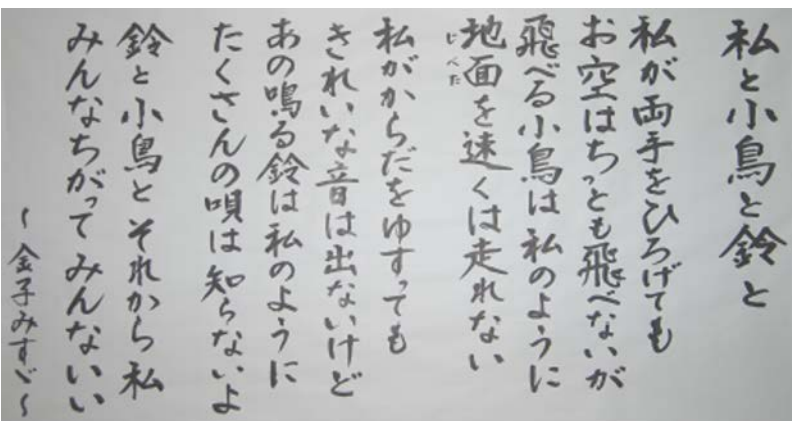 私と小鳥と鈴と
私が両手をひろげても
お空はちっとも飛べないが
飛べる小鳥は私のように
地面を速くは走れない
じべた
私がからだをゆすっても
きれいな音は出ないけど
あの鳴る鈴は私のように
たくさんの唄は知らないよ
鈴と小鳥とそれから私
みんなちがってみんないい
〜金子みすゞ〜